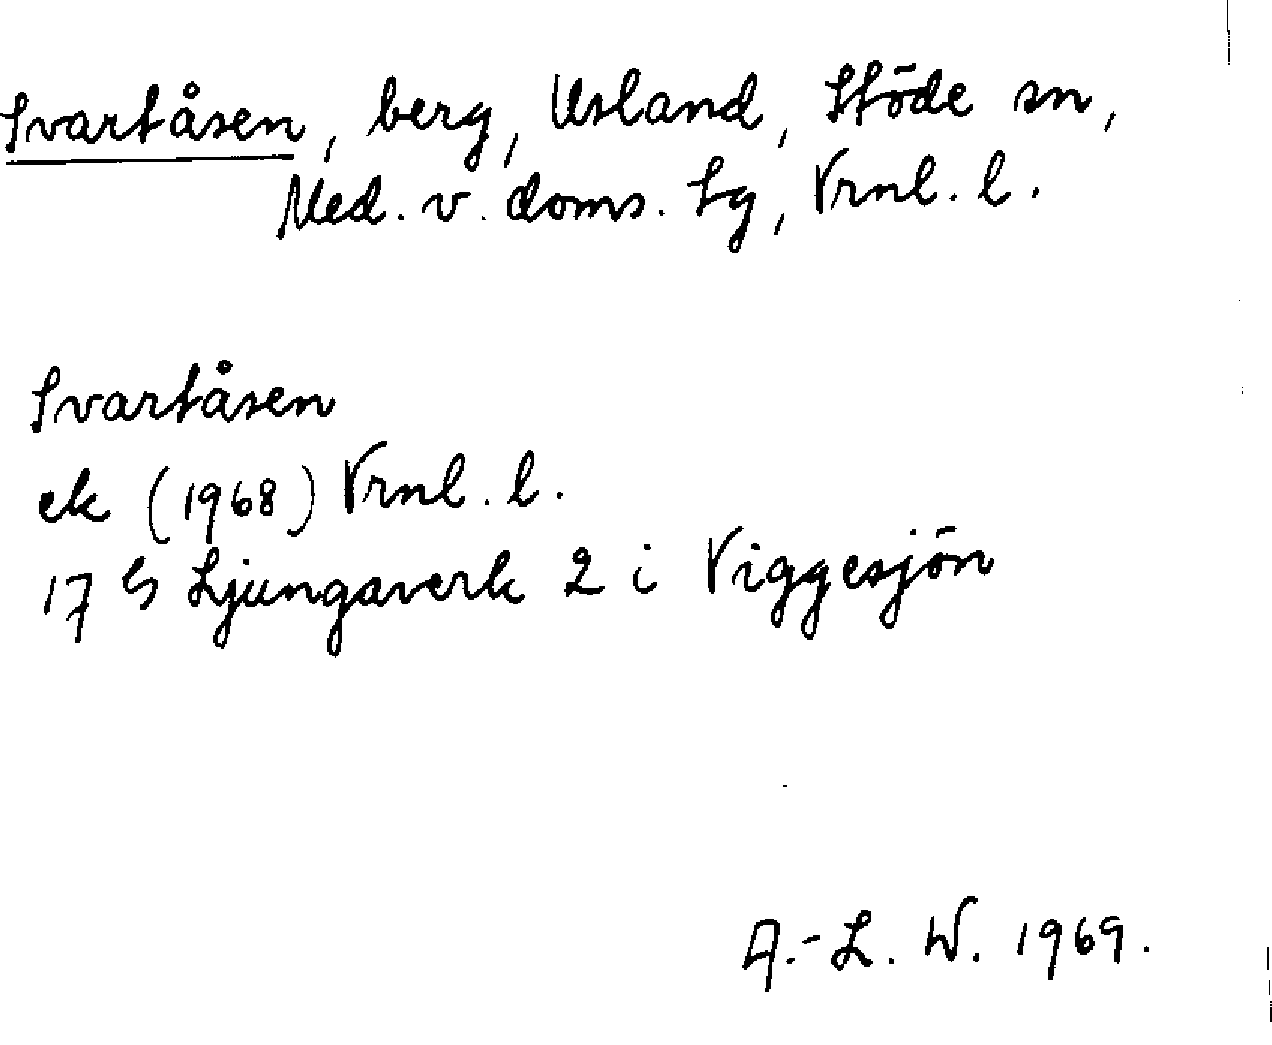 Svartåsen, berg, Usland, Stöde sn,
Med. v. doms. tg, Vrnl. l.
Svartåsen
ek (1968) Vrnl. l.
17 G Ljungaverk 2 i Viggesjön
A.-L. W. 1969.